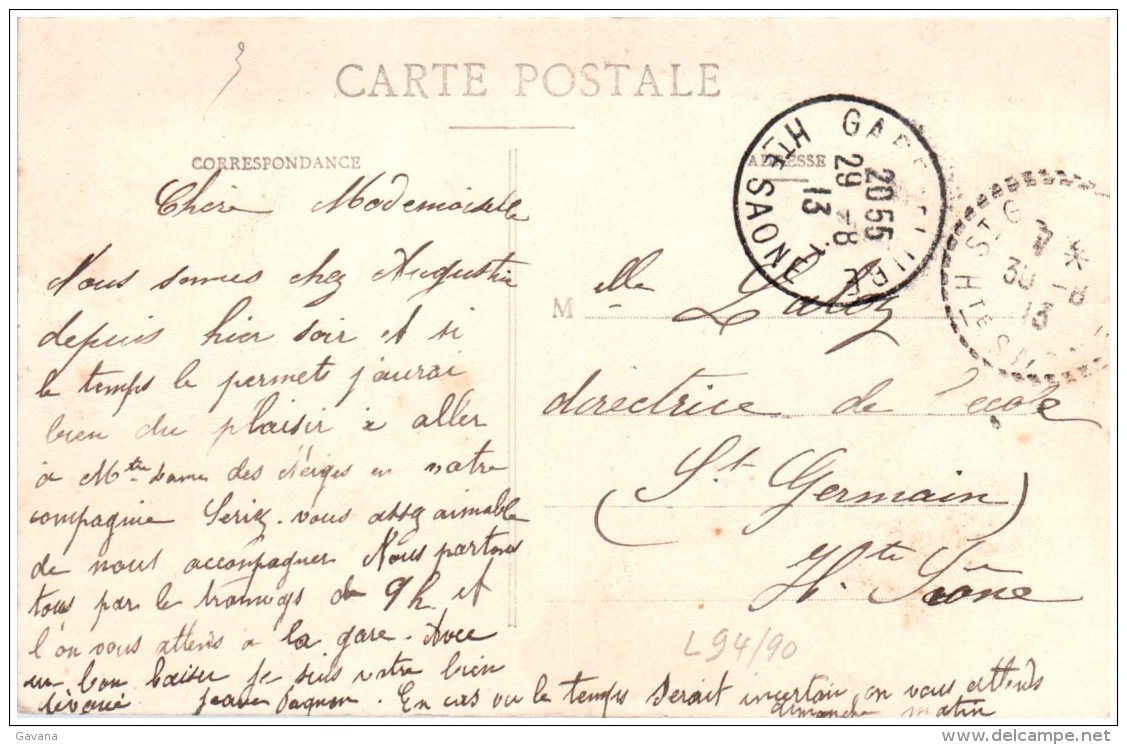 CARTE POSTALE
CORRESPONDANCE
ADRESSE
Chère Mademoiselle
Nous somes chez Augustin
depuis hier soir et si
le temps le permets j'aurai
bien du plaisir a aller
à Ntre Dame des Neiges en votre
compagnie Seriez-vous assez aimable
de nous accompagner Nous partons
tous par le tramways de 9h et
l'on vous attends a la gare. Avec
un bon baiser je suis votre bien
dévoué Jeanne Pagnon. En cas ou le temps serait incertain, on vous attends
dimanche matin
GARE
LURE
HTE SAONE
20 55
29 -8
13
ST G
7 *
30 -8
13
HTE S
Melle Lardy
directrice de l'ecole
(St Germain)
Hte Saone
L94/90
Gavana
www.delcampe.net